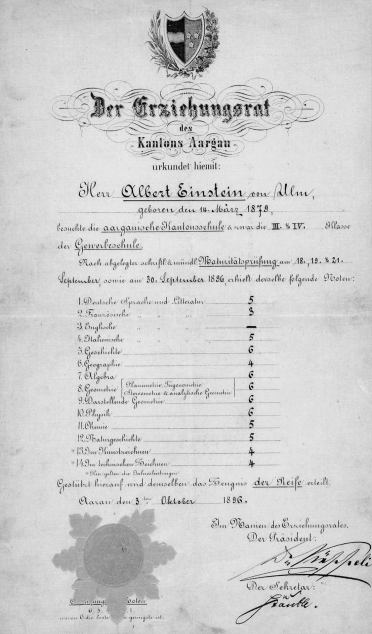 Der Erziehungsrat
des
Kantons Aargau
urkundet hiemit:
Herr Albert Einstein von Ulm,
geboren den 14. März 1879,
besuchte die aargauische Kantonsschule & zwar die III. & IV. Klasse
der Gewerbeschule.
Nach abgelegter schriftl. & mündl. Maturitätsprüfung am 18., 19. & 21.
September, sowie am 30. September 1896, erhielt derselbe folgende Noten:
1. Deutsche Sprache und Litteratur 5
2. Französische „ „ „ 3
3. Englische „ „ „ —
4. Italienische „ „ „ 5
5. Geschichte 6
6. Geographie 4
7. Algebra 6
8. Geometrie (Planimetrie, Trigonometrie, Stereometrie & analytische Geometrie) 6
9. Darstellende Geometrie 6
10. Physik 6
11. Chemie 5
12. Naturgeschichte 5
*13. Im Kunstzeichnen 4
*14. Im technischen Zeichnen 4
* Hier gelten die Jahresleistungen.
Gestützt hierauf wird demselben das Zeugnis der Reife erteilt.
Aarau den 3ten Oktober 1896.
Im Namen des Erziehungsrates,
Der Präsident:
Der Sekretär:
6. 5.